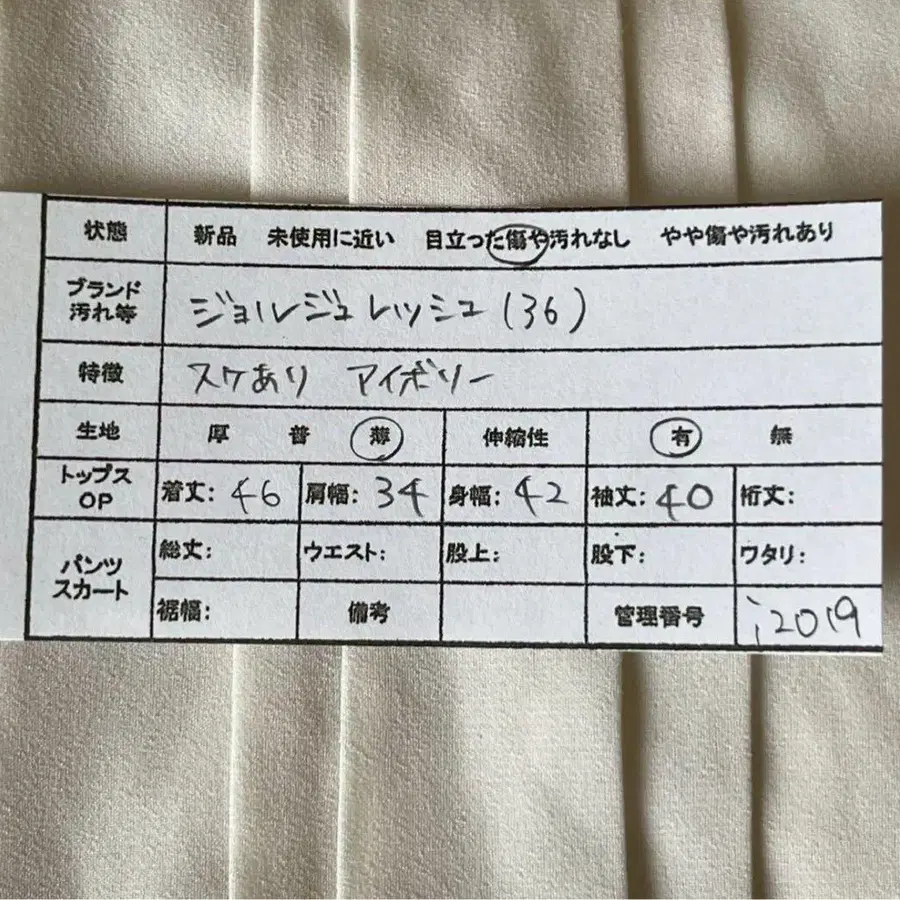 状態 新品 未使用に近い 目立った傷や汚れなし やや傷や汚れあり
ブランド
汚れ等 ジョルジュレッシュ(36)
特徴 スケあり アイボリー
生地 厚 普 薄 伸縮性 有 無
トップス
OP 着丈: 46 肩幅: 34 身幅: 42 袖丈: 40 裄丈:
パンツ
スカート 総丈: ウエスト: 股上: 股下: ワタリ:
裾幅: 備考 管理番号 i2019